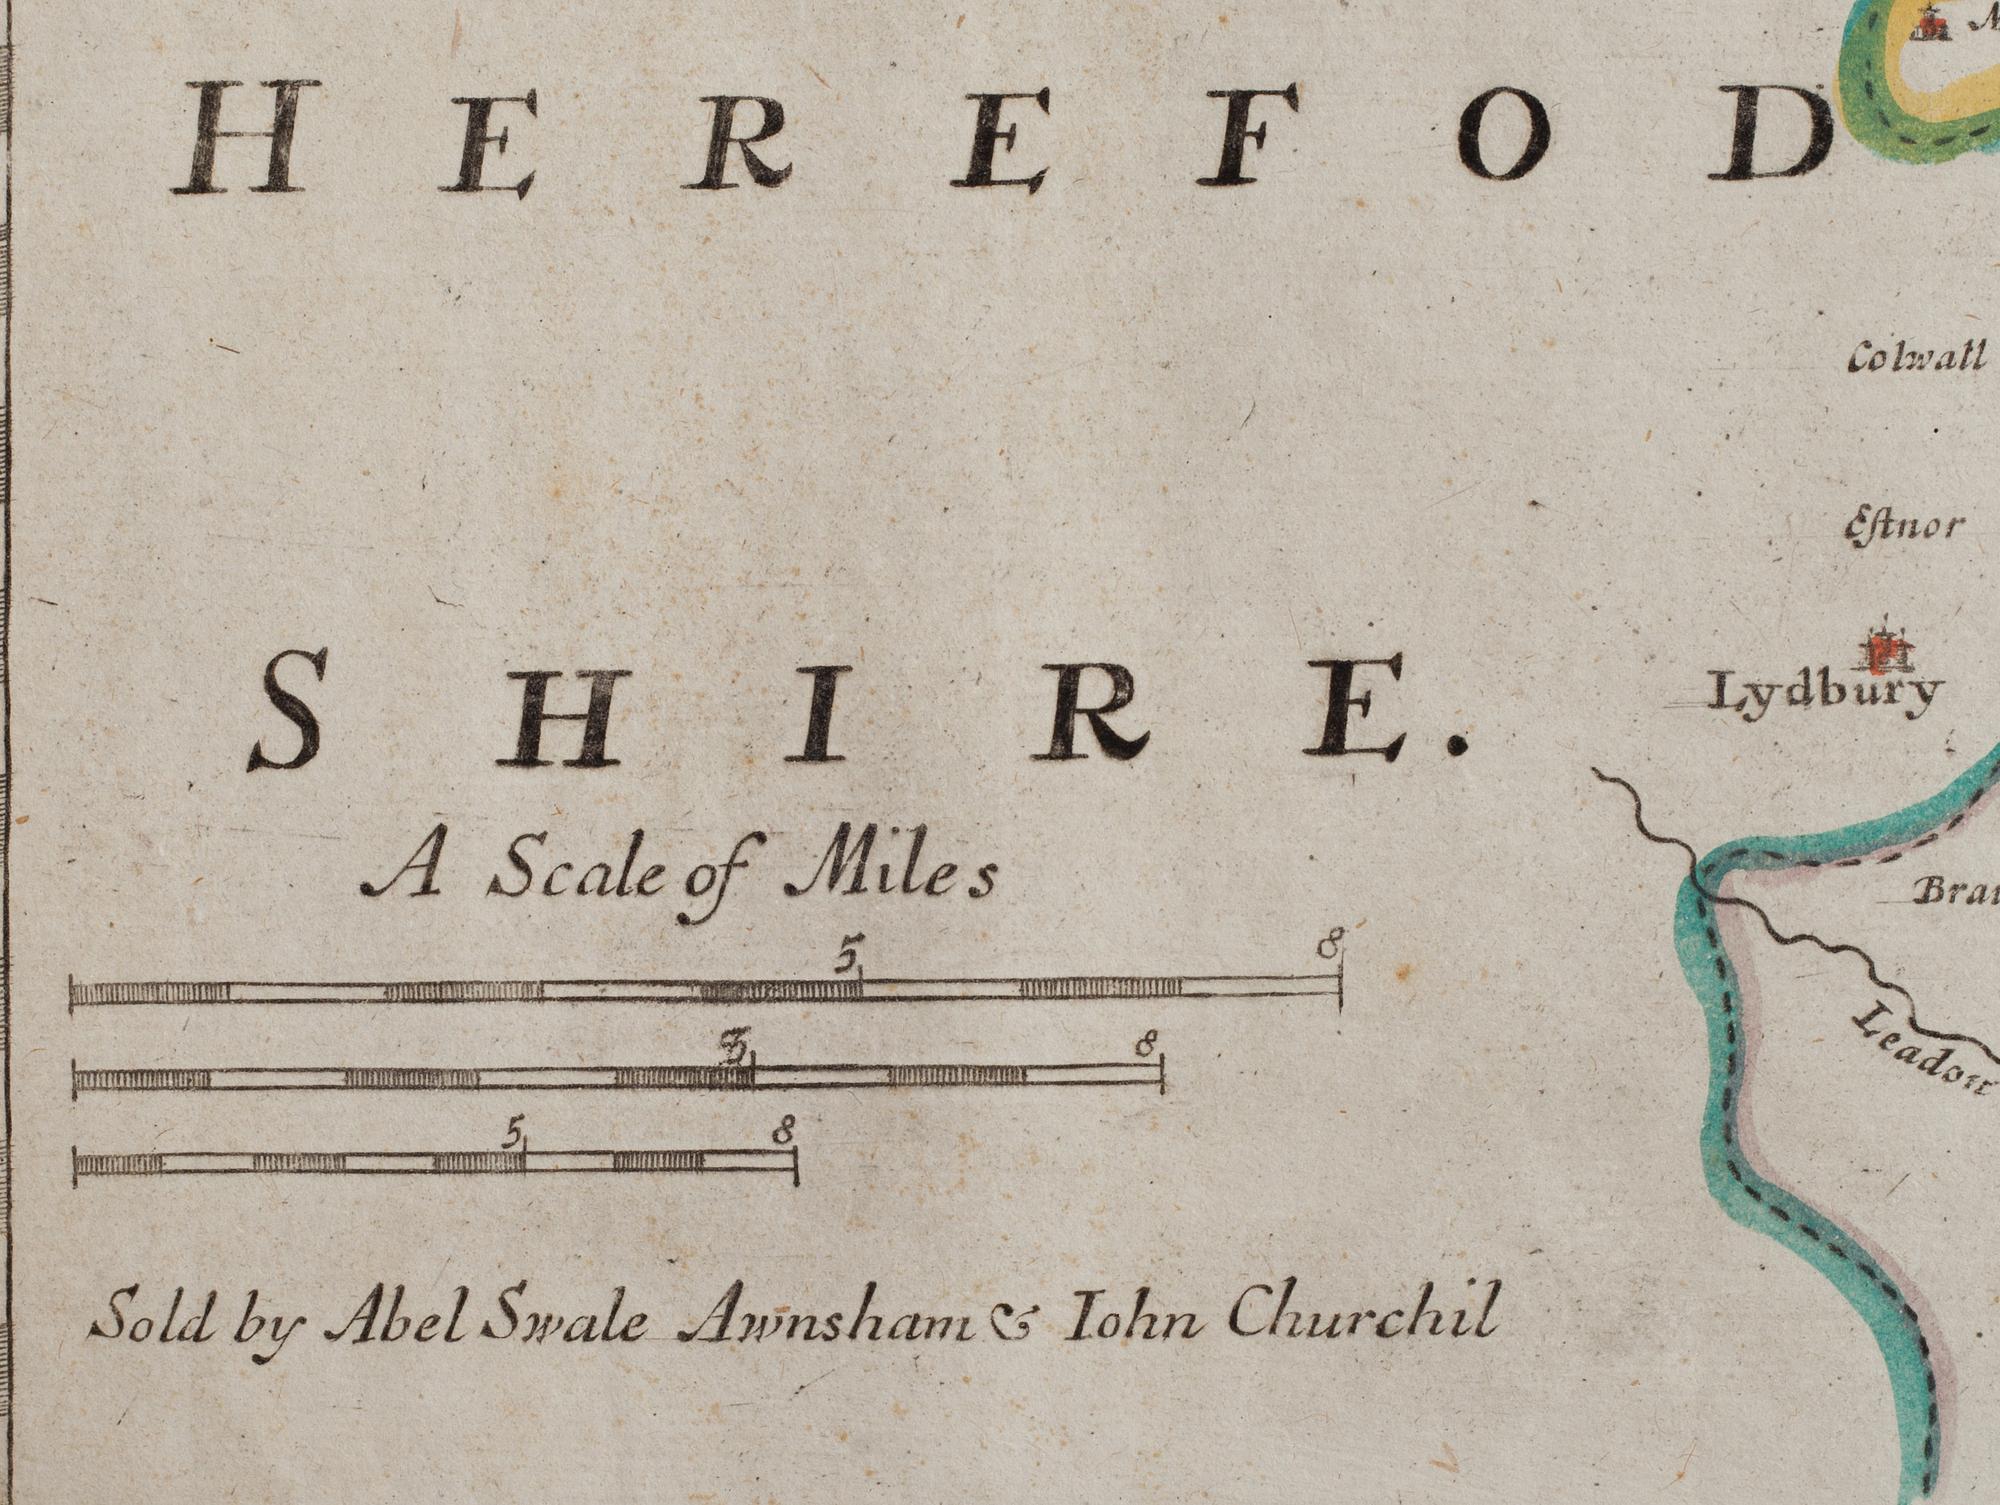 HEREFOD
Colwall
Eſtnor
Lydbury
SHIRE.
A Scale of Miles
5 8
5 8
5 8
Leadon
Sold by Abel Swale Awnsham & Iohn Churchil